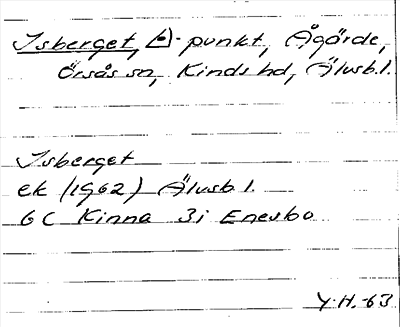 Isberget, b-punkt, Ågärde,
Örsås sn, Kinds hd, Älvsb.l.
Isberget
ek (1962) Älvsb l.
6 C Kinna 3i Enesbo
Y.H.-63